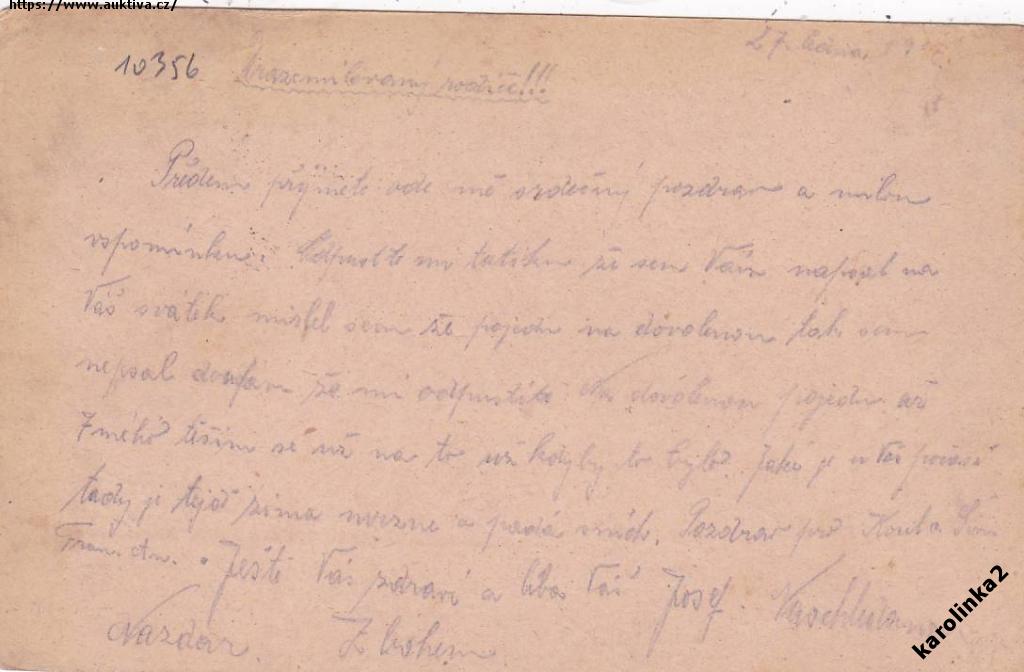 https://www.auktiva.cz/
27. ledna
10356 Drazemilovaný rodiče!!!
Předem přijměte ode mě srdečný pozdrav a milou
vspomínku. Odpusťte mi tatíku že sem Vám napsal na
Váš svátek mislel sem že pojedu na dovolenou tak sem
nepsal doufam že mi odpustíte Na dovolenou pojedu až
7mého těším se už na to už kdyby to bylo. Jako je u Vás počasí
tady je tejď zima mrzne a padá sníh. Pozdrav pro
Ještě Vás zdraví a líbá Váš Josef.
Nazdar. Z bohem
karolinka2